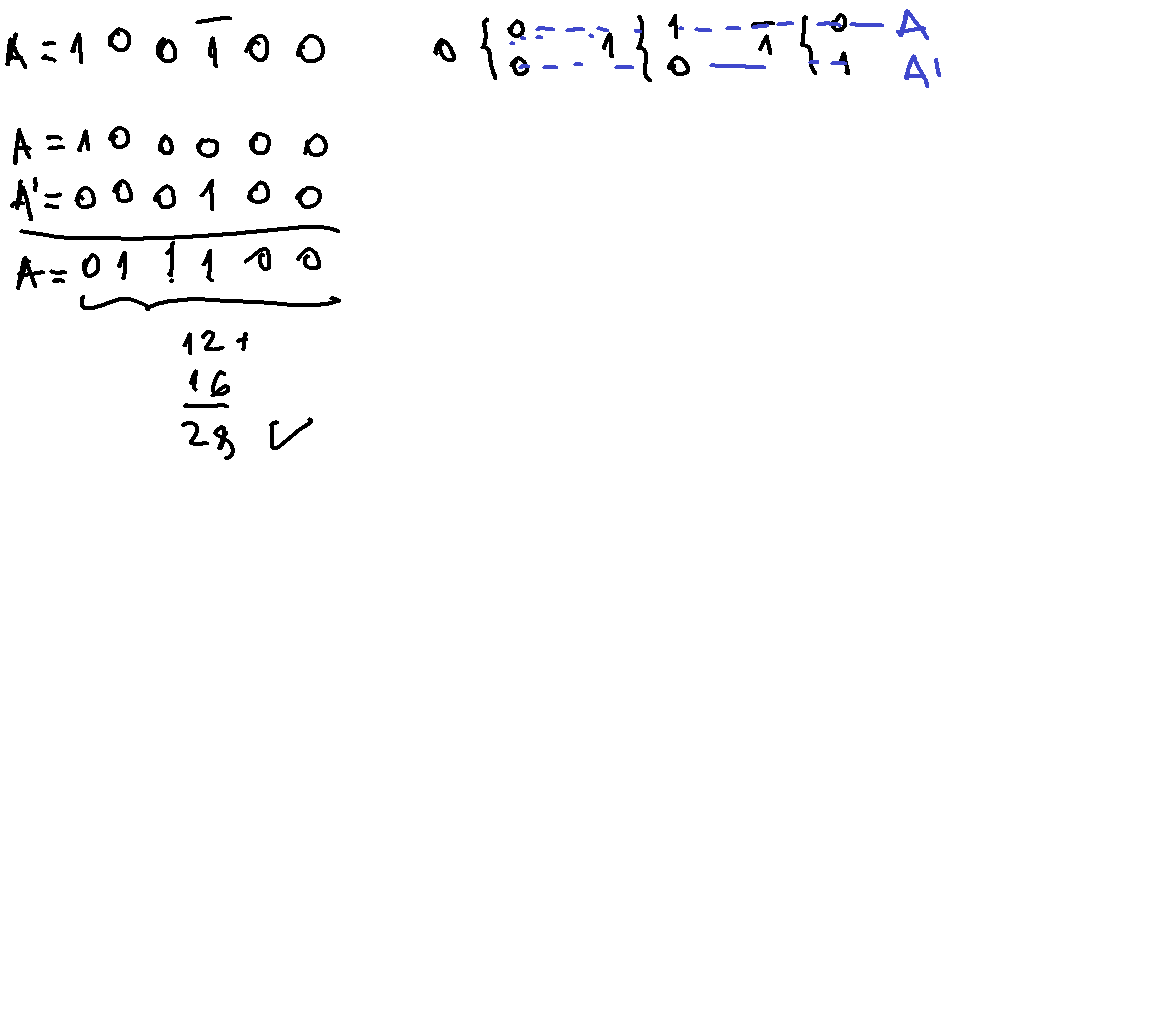 A = 1 0 0 1̅ 0 0
0 { 0 A
0 A'
1 { 1
0
1̅ { 0
1
A = 1 0 0 0 0 0
A' = 0 0 0 1 0 0
A = 0 1 1 1 0 0
12 +
16
28 ✓